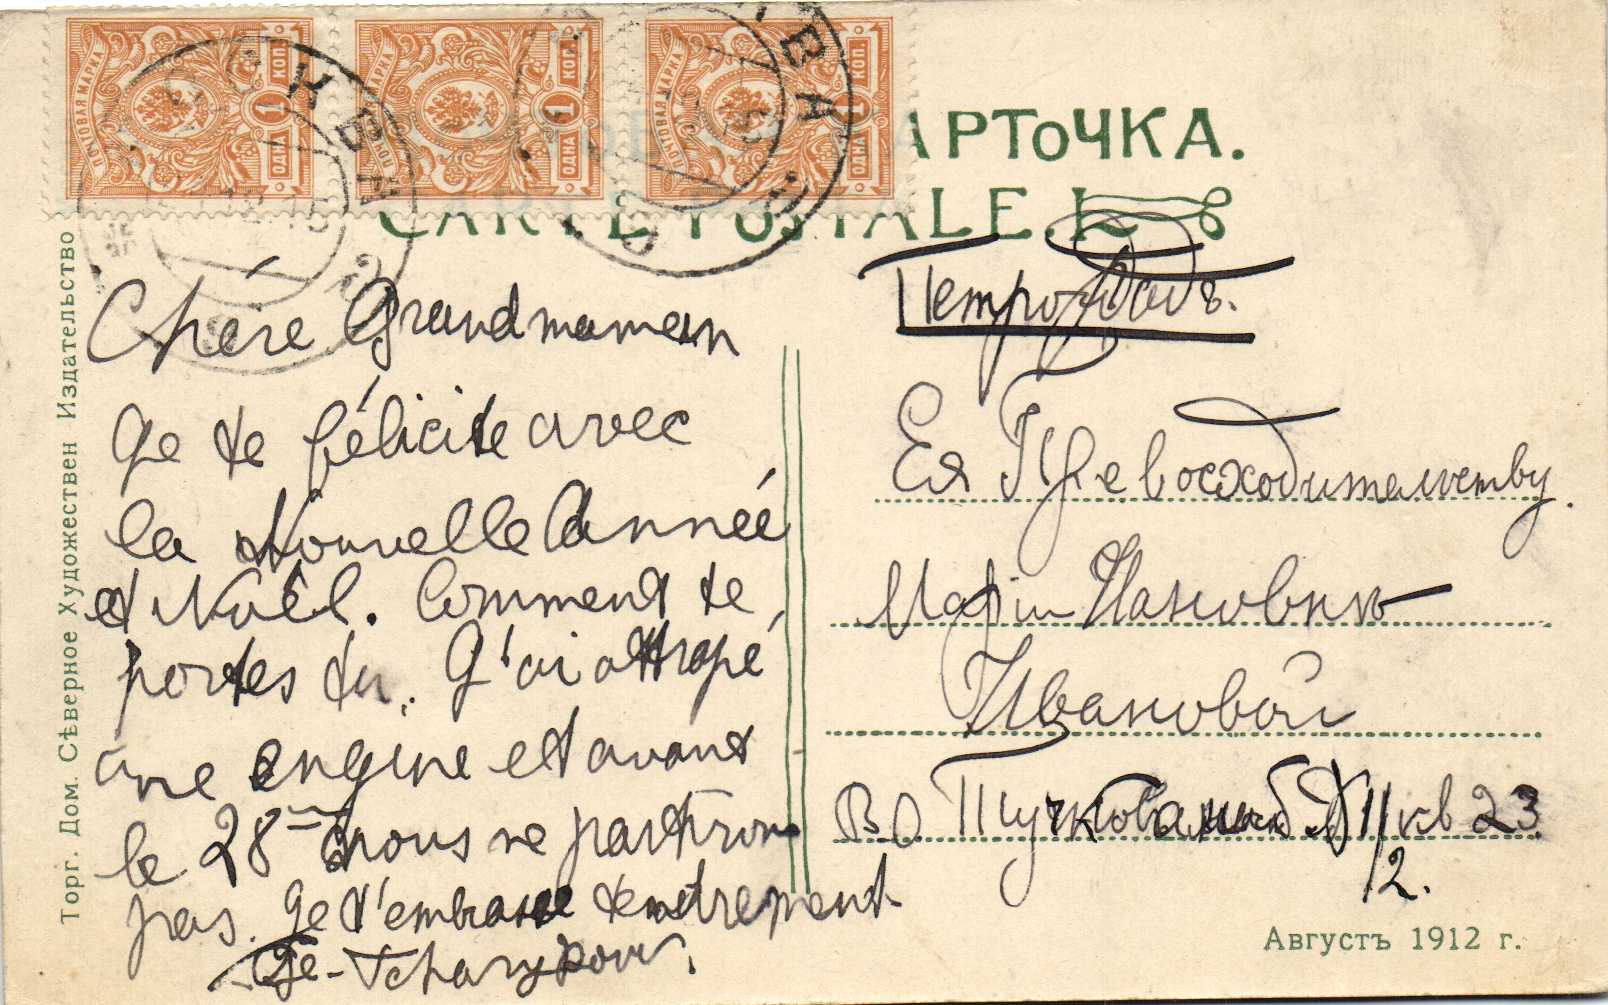 ПОЧТОВАЯ МАРКА
1 КОП.
ОДНА 1
ПОЧТОВАЯ МАРКА
1 КОП.
ОДНА 1
ПОЧТОВАЯ МАРКА
1 КОП.
ОДНА 1
МОСКВА
АРТОЧКА.
CARTE POSTALE.
Торг. Дом. Сѣверное Художествен Издательство
Chére Grandmaman
Je te félicite avec
la Nouvelle Année
et Noêl. Comment te
portes tu. J'ai attrapé
une engine et avant
le 28 nous ne partirons
pas. Je t'embrasse tendrement
Петроградъ.
Ея Превосходительству.
Маріи Ивановнѣ
Ивановой
В О д 11 кв 23
12.
Августъ 1912 г.